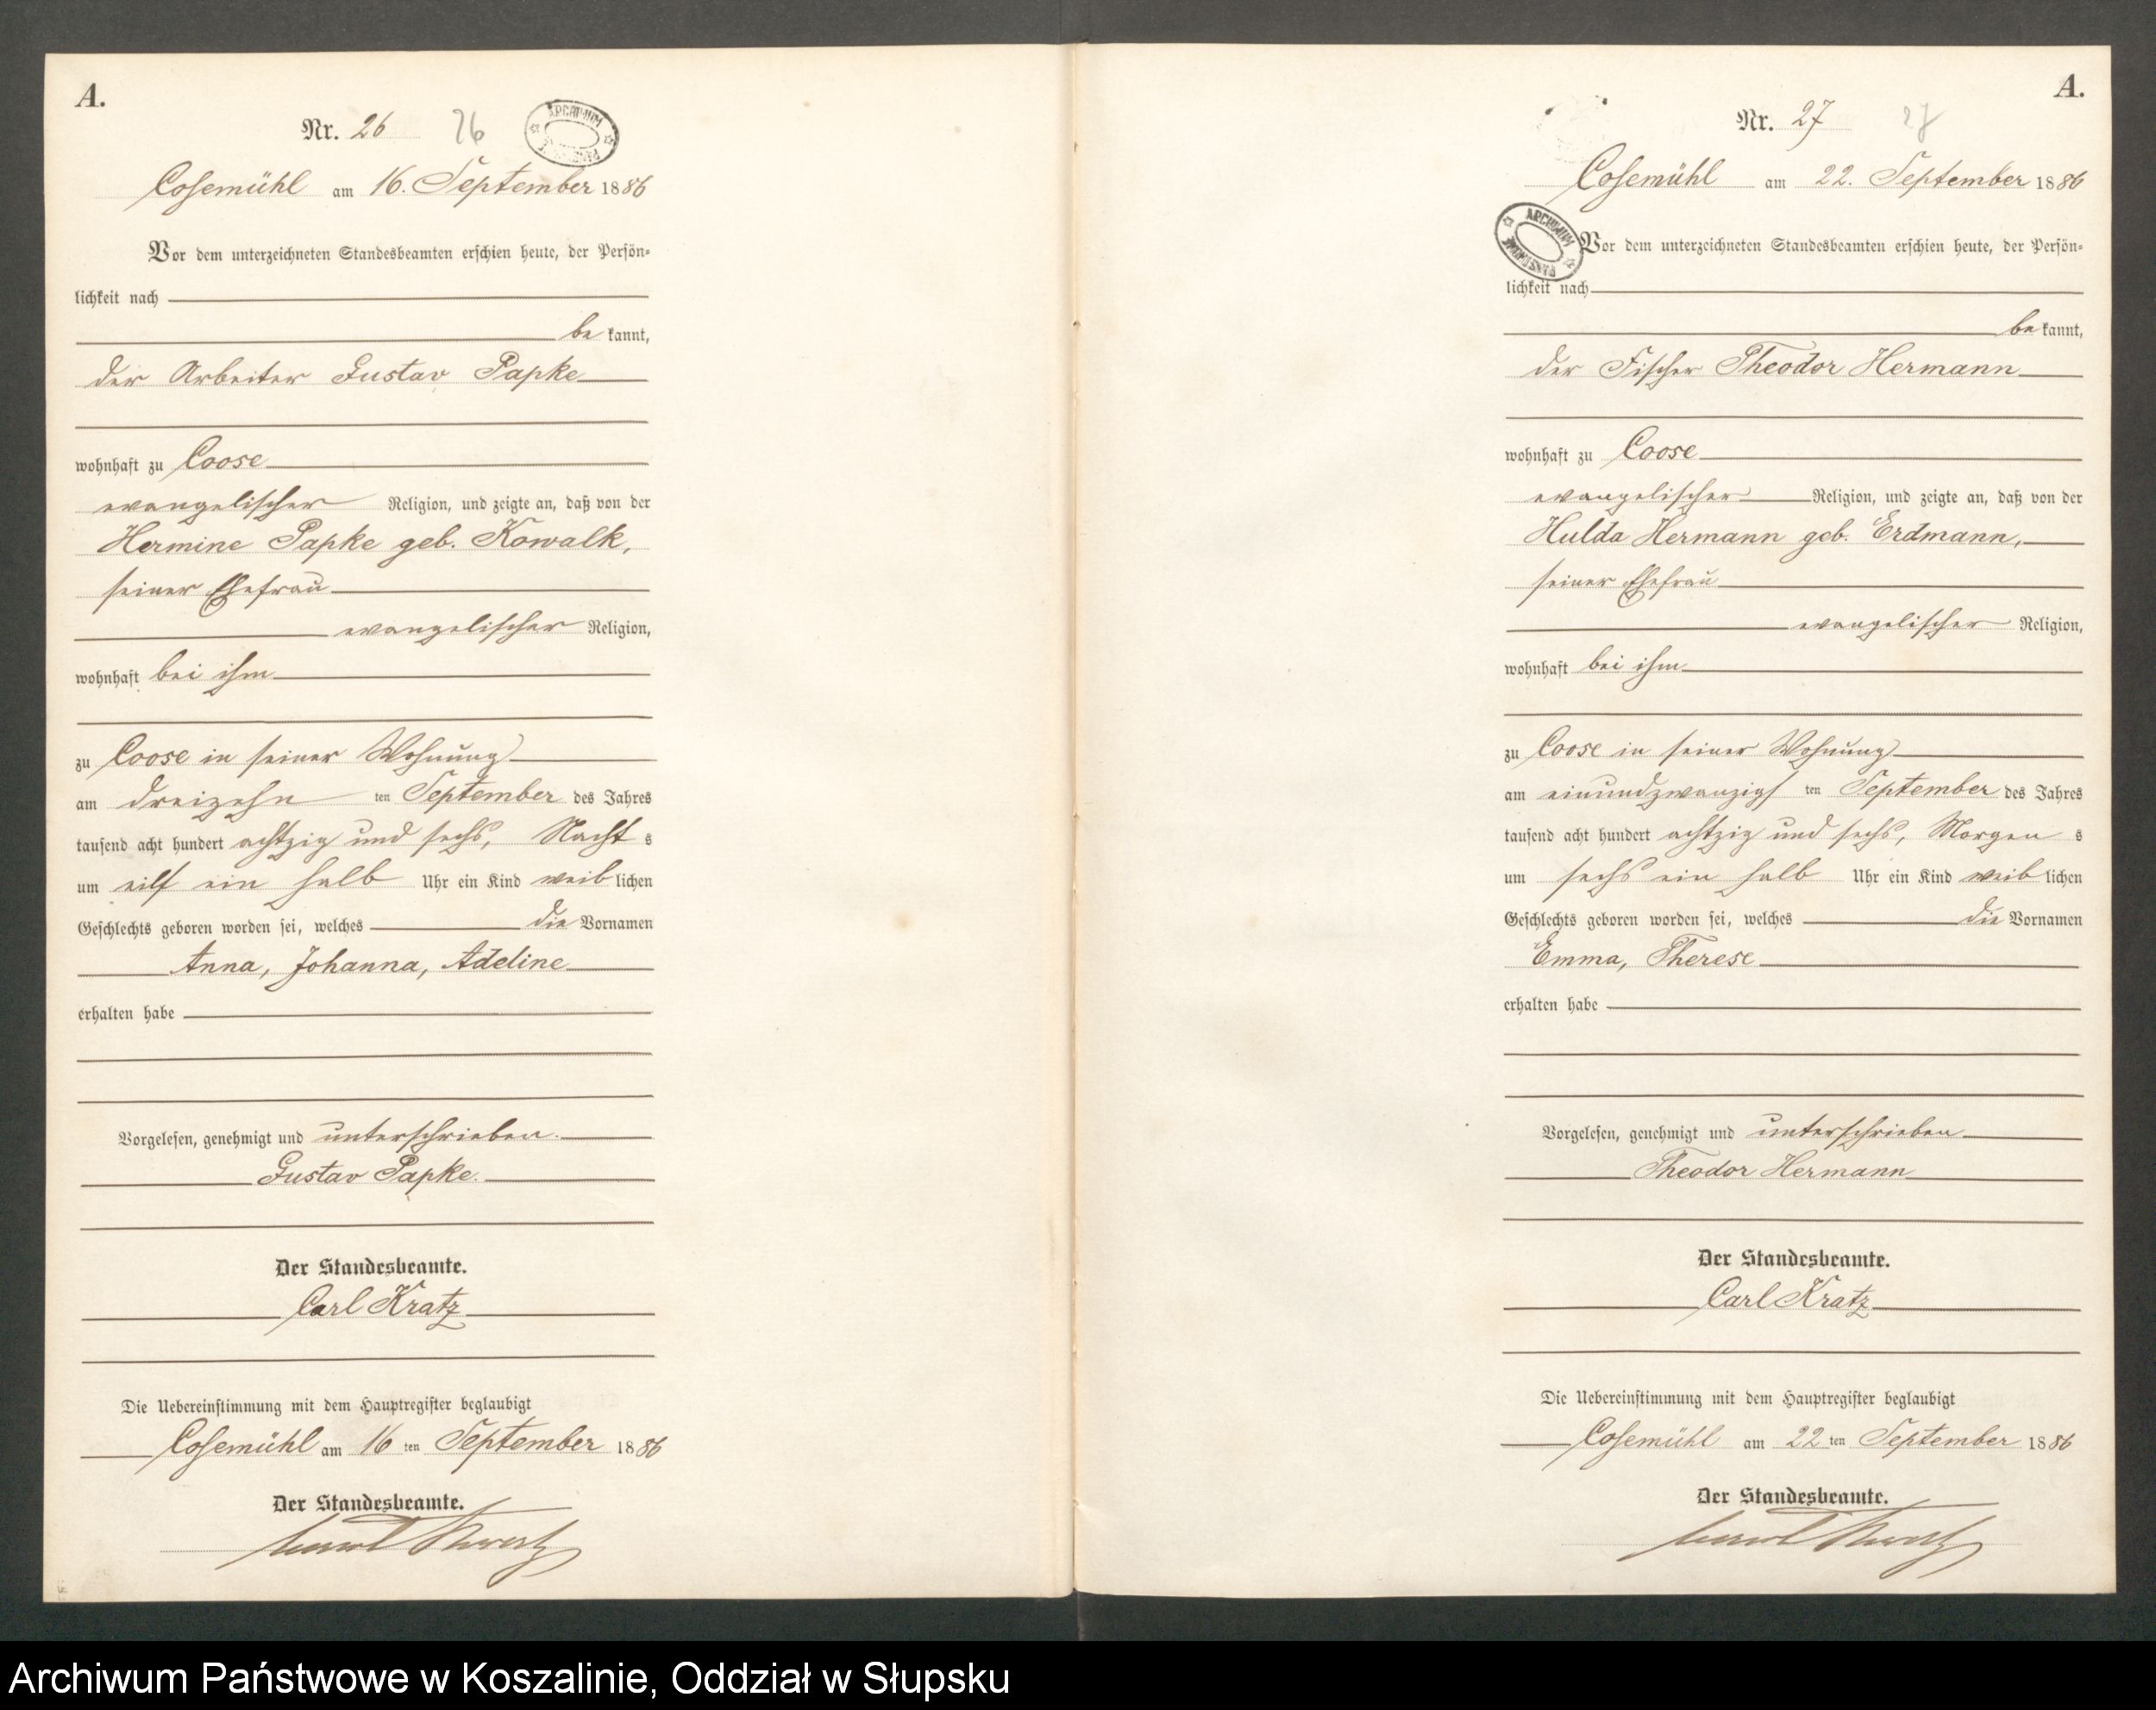 A.
Nr. 26 26
ARCHIWUM
Cosemühl am 16. September 1886
Vor dem unterzeichneten Standesbeamten erschien heute, der Persön-
lichkeit nach
be kannt,
der Arbeiter Gustav Papke
wohnhaft zu Coose
evangelischer Religion, und zeigte an, daß von der
Hermine Papke geb. Kowalk,
seiner Ehefrau
evangelischer Religion,
wohnhaft bei ihm
zu Coose in seiner Wohnung
am dreizehn ten September des Jahres
tausend acht hundert achtzig und sechs, Nacht s
um eilf ein halb Uhr ein Kind weib lichen
Geschlechts geboren worden sei, welches die Vornamen
Anna, Johanna, Adeline
erhalten habe
Vorgelesen, genehmigt und unterschrieben.
Gustav Papke.
Der Standesbeamte.
Carl Kratz
Die Uebereinstimmung mit dem Hauptregister beglaubigt
Cosemühl am 16 ten September 1886
Der Standesbeamte.
Carl Kratz
A.
Nr. 27 27
Cosemühl am 22. September 1886
ARCHIWUM
Vor dem unterzeichneten Standesbeamten erschien heute, der Persön-
lichkeit nach
be kannt,
der Fischer Theodor Hermann
wohnhaft zu Coose
evangelischer Religion, und zeigte an, daß von der
Hulda Hermann geb. Erdmann,
seiner Ehefrau
evangelischer Religion,
wohnhaft bei ihm
zu Coose in seiner Wohnung
am einundzwanzigs ten September des Jahres
tausend acht hundert achtzig und sechs, Morgen s
um sechs ein halb Uhr ein Kind weib lichen
Geschlechts geboren worden sei, welches die Vornamen
Emma, Therese
erhalten habe
Vorgelesen, genehmigt und unterschrieben
Theodor Hermann
Der Standesbeamte.
Carl Kratz
Die Uebereinstimmung mit dem Hauptregister beglaubigt
Cosemühl am 22 ten September 1886
Der Standesbeamte.
Carl Kratz
Archiwum Państwowe w Koszalinie, Oddział w Słupsku